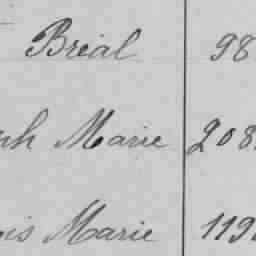 Bréal 98
Marie 208
Marie 119